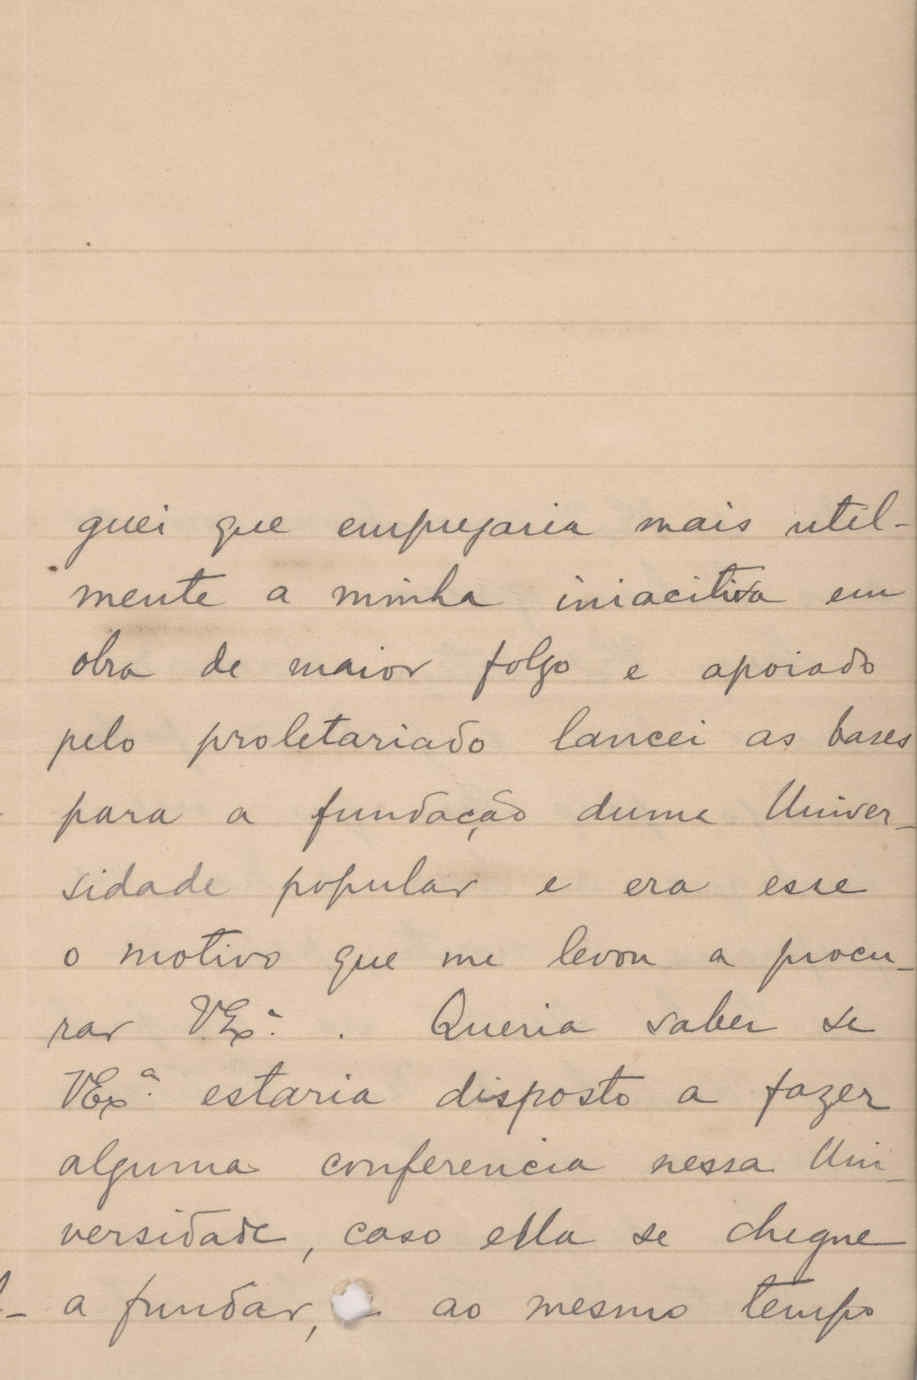 guei que empregaria mais util-
mente a minha iniacitiva em
obra de maior folgo e apoiado
pelo proletariado lancei as bases
para a fundação duma Univer-
sidade popular e era esse
o motivo que me levou a procu-
rar V.Exª. . Queria saber se
VExª. estaria disposto a fazer
alguma conferencia nessa Uni-
versidade, caso ella se chegue
a fundar, ao mesmo tempo